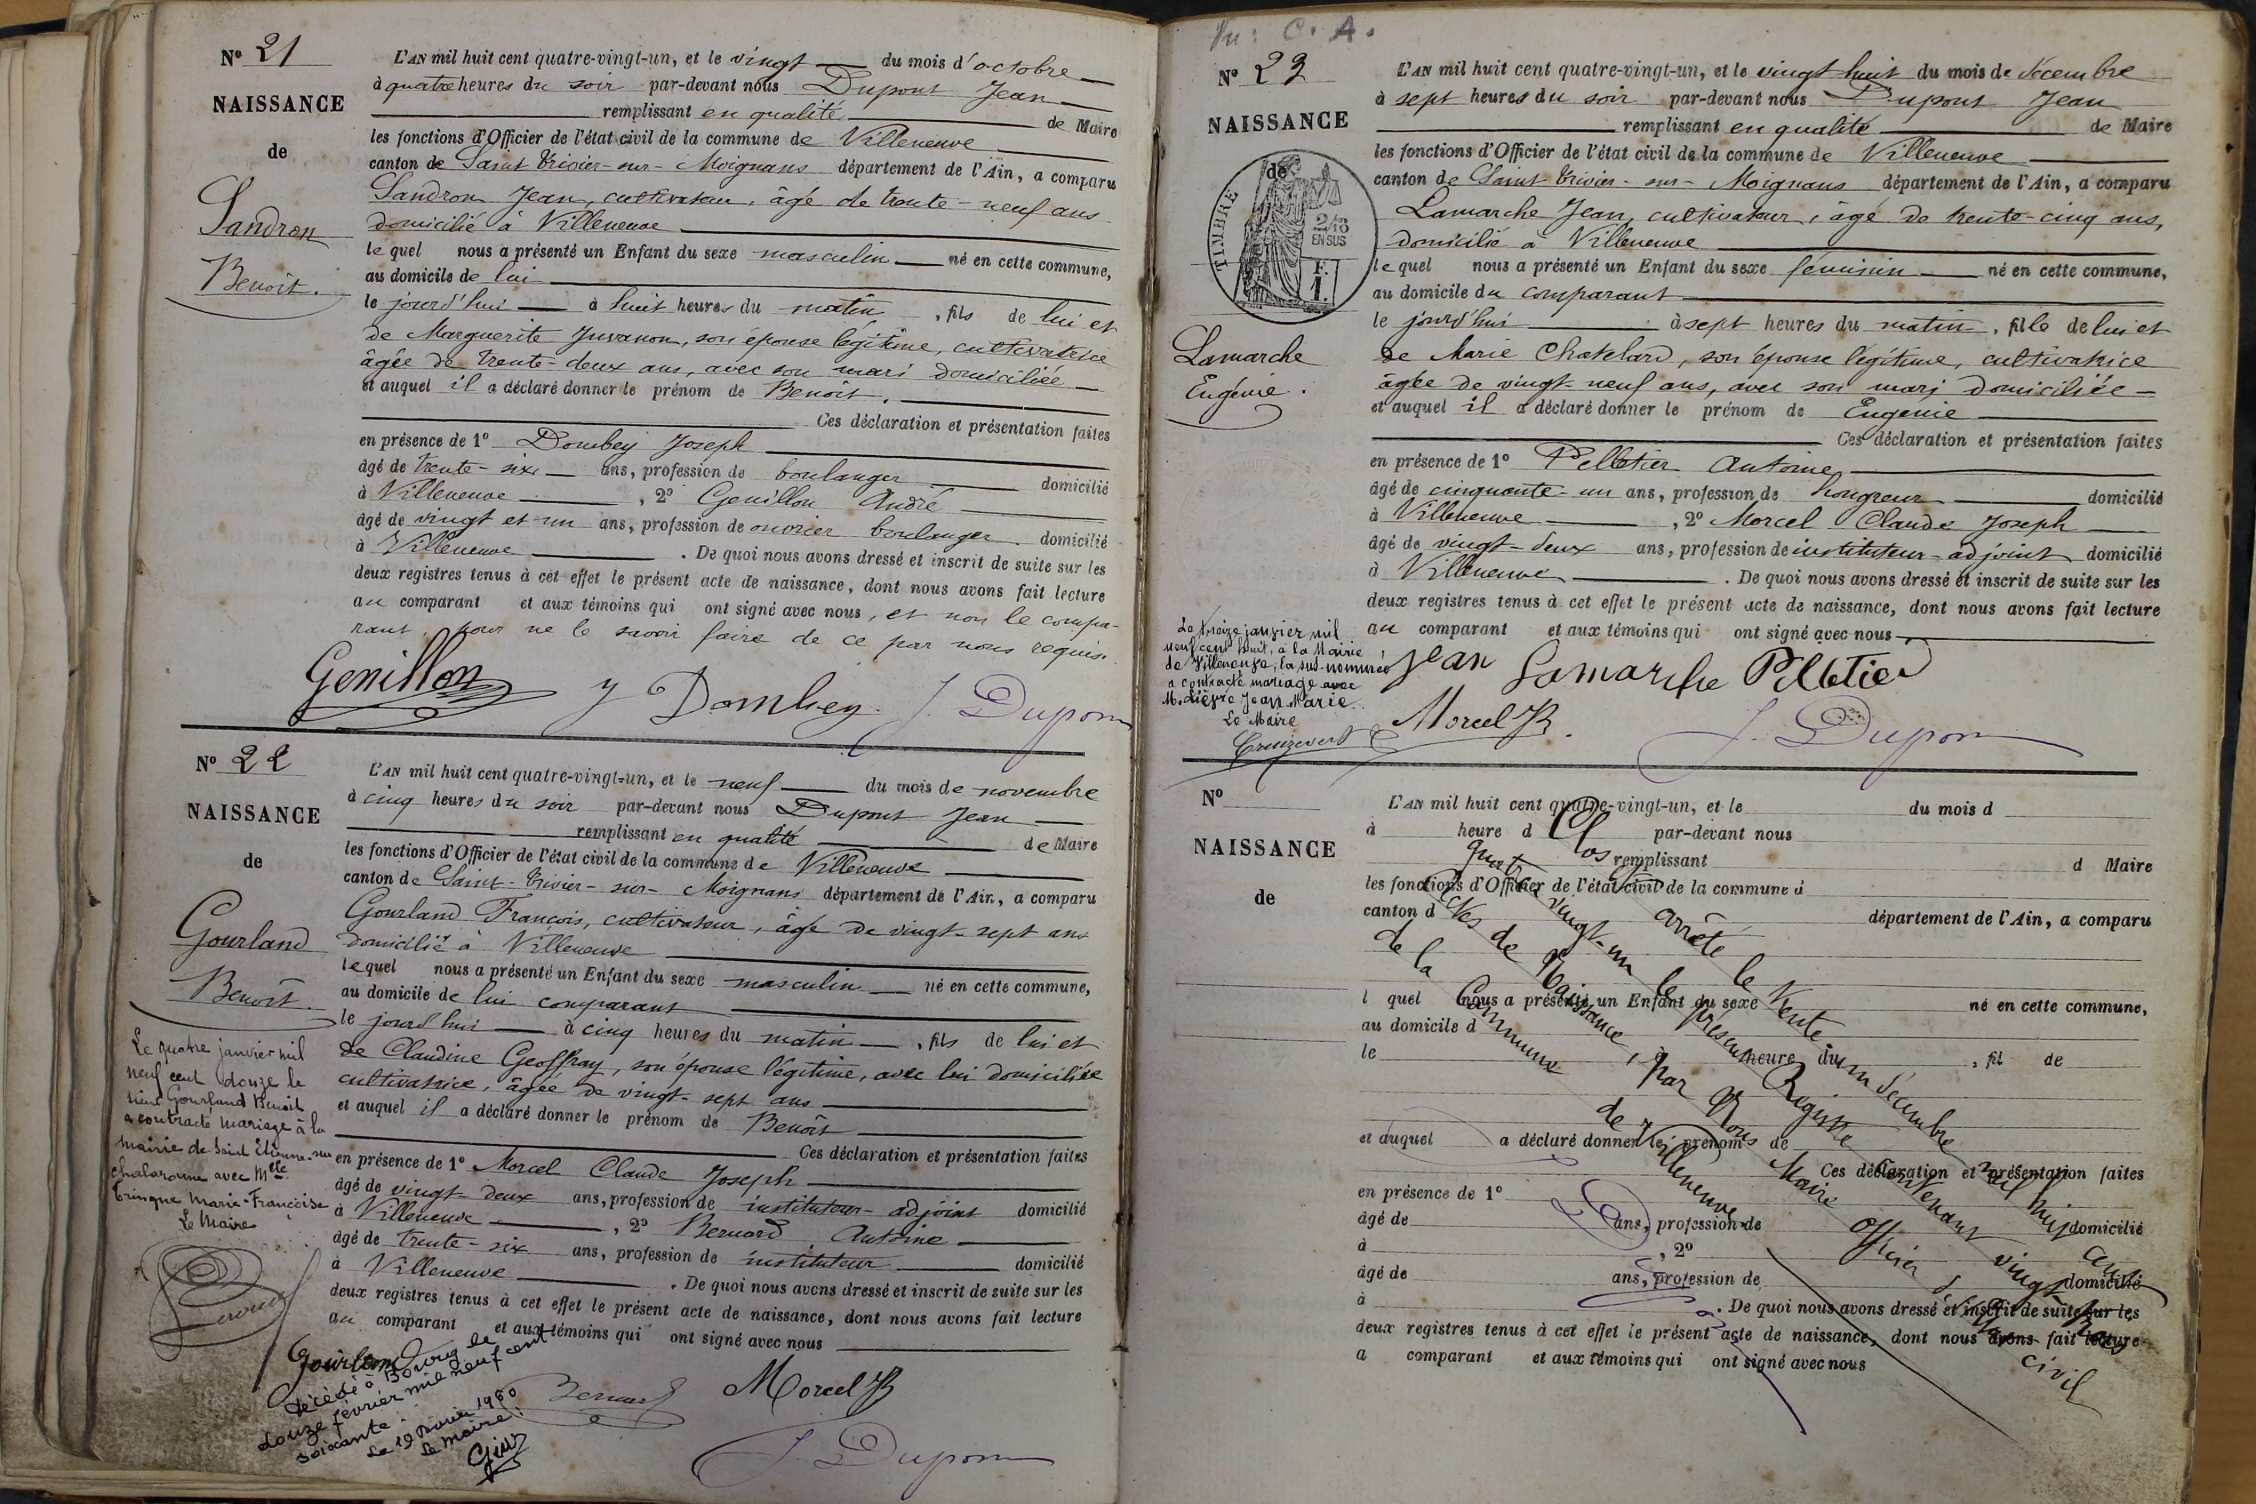 Nº 21
NAISSANCE
de
Sandron
Benoît.
L'AN mil huit cent quatre-vingt-un, et le vingt du mois d'octobre
à quatre heures du soir par-devant nous Dupont Jean
remplissant en qualité de Maire
les fonctions d'Officier de l'état civil de la commune de Villeneuve
canton de Saint Trivier-sur-Moignans département de l'Ain, a comparu
Sandron Jean, cultivateur, âgé de trente-neuf ans
domicilié à Villeneuve
lequel nous a présenté un Enfant du sexe masculin né en cette commune,
au domicile de lui
le jourd'hui à huit heures du matin, fils de lui et
de Marguerite Juvanon, son épouse légitime, cultivatrice
âgée de trente-deux ans, avec son mari domiciliée
et auquel il a déclaré donner le prénom de Benoît.
Ces déclaration et présentation faites
en présence de 1º Dombey Joseph
âgé de trente-six ans, profession de boulanger domicilié
à Villeneuve, 2º Genillon André
âgé de vingt et un ans, profession de ouvrier boulanger domicilié
à Villeneuve. De quoi nous avons dressé et inscrit de suite sur les
deux registres tenus à cet effet le présent acte de naissance, dont nous avons fait lecture
au comparant et aux témoins qui ont signé avec nous, et non le compa-
rant pour ne le savoir faire de ce par nous requis.
Genillon J Dombey J. Dupont
Nº 22
NAISSANCE
de
Gourland
Benoît
L'AN mil huit cent quatre-vingt-un, et le neuf du mois de novembre
à cinq heures du soir par-devant nous Dupont Jean
remplissant en qualité de Maire
les fonctions d'Officier de l'état civil de la commune de Villeneuve
canton de Saint-Trivier-sur-Moignans département de l'Ain, a comparu
Gourland François, cultivateur, âgé de vingt-sept ans
domicilié à Villeneuve
lequel nous a présenté un Enfant du sexe masculin né en cette commune,
au domicile de lui comparant
le jourd'hui à cinq heures du matin, fils de lui et
de Claudine Geoffray, son épouse légitime, avec lui domiciliée
cultivatrice, âgée de vingt-sept ans
et auquel il a déclaré donner le prénom de Benoît
Ces déclaration et présentation faites
en présence de 1º Morcel Claude Joseph
âgé de vingt-deux ans, profession de instituteur-adjoint domicilié
à Villeneuve, 2º Bernard Antoine
âgé de trente-six ans, profession de instituteur domicilié
à Villeneuve. De quoi nous avons dressé et inscrit de suite sur les
deux registres tenus à cet effet le présent acte de naissance, dont nous avons fait lecture
au comparant et aux témoins qui ont signé avec nous
Gourland Bernard Morcel
J. Dupont
Le quatre janvier mil
neuf cent douze le
sieur Gourland Benoit
a contracté mariage à la
mairie de Saint Etienne-sur
Chalaronne avec Melle
Tringue Marie-Françoise
Le Maire
décédé à Bourg le
douze février mil neuf cent
soixante.
Le 19 février 1960
Le Maire:
Vu: C. A.
Nº 23
NAISSANCE
de
TIMBRE
2/10
EN SUS
F.
1.
Lamarche
Eugénie.
L'AN mil huit cent quatre-vingt-un, et le vingt huit du mois de décembre
à sept heures du soir par-devant nous Dupont Jean
remplissant en qualité de Maire
les fonctions d'Officier de l'état civil de la commune de Villeneuve
canton de Saint Trivier-sur-Moignans département de l'Ain, a comparu
Lamarche Jean, cultivateur, âgé de trente-cinq ans,
domicilié à Villeneuve
lequel nous a présenté un Enfant du sexe féminin né en cette commune,
au domicile du comparant
le jourd'hui à sept heures du matin, fille de lui et
de Marie Chatelard, son épouse légitime, cultivatrice
âgée de vingt-neuf ans, avec son mari domiciliée
et auquel il a déclaré donner le prénom de Eugénie
Ces déclaration et présentation faites
en présence de 1º Pelletier Antoine
âgé de cinquante-un ans, profession de hongreur domicilié
à Villeneuve, 2º Morcel Claude Joseph
âgé de vingt-deux ans, profession de instituteur-adjoint domicilié
à Villeneuve. De quoi nous avons dressé et inscrit de suite sur les
deux registres tenus à cet effet le présent acte de naissance, dont nous avons fait lecture
au comparant et aux témoins qui ont signé avec nous
Jean Lamarche Pelletier
Morcel J. Dupont
Le treize janvier mil
neuf cent huit, à la Mairie
de Villeneuve, la sus-nommée
a contracté mariage avec
M. Lièvre Jean Marie.
Le Maire
Nº
NAISSANCE
de
L'AN mil huit cent quatre-vingt-un, et le du mois d
à heure d par-devant nous
remplissant d Maire
les fonctions d'Officier de l'état civil de la commune d
canton d département de l'Ain, a comparu
l quel nous a présenté un Enfant du sexe né en cette commune,
au domicile d
le à heure du, fil de
et auquel a déclaré donner le prénom de
Ces déclaration et présentation faites
en présence de 1º
âgé de ans, profession de domicilié
à , 2º
âgé de ans, profession de domicilié
à . De quoi nous avons dressé et inscrit de suite sur les
deux registres tenus à cet effet le présent acte de naissance, dont nous avons fait lecture
a comparant et aux témoins qui ont signé avec nous
Clos et arrêté le trente un décembre mil huit cent
quatre vingt-un le présent Registre contenant vingt trois
actes de Naissance, par Nous Maire officier d l'état civil
de la Commune de Villeneuve